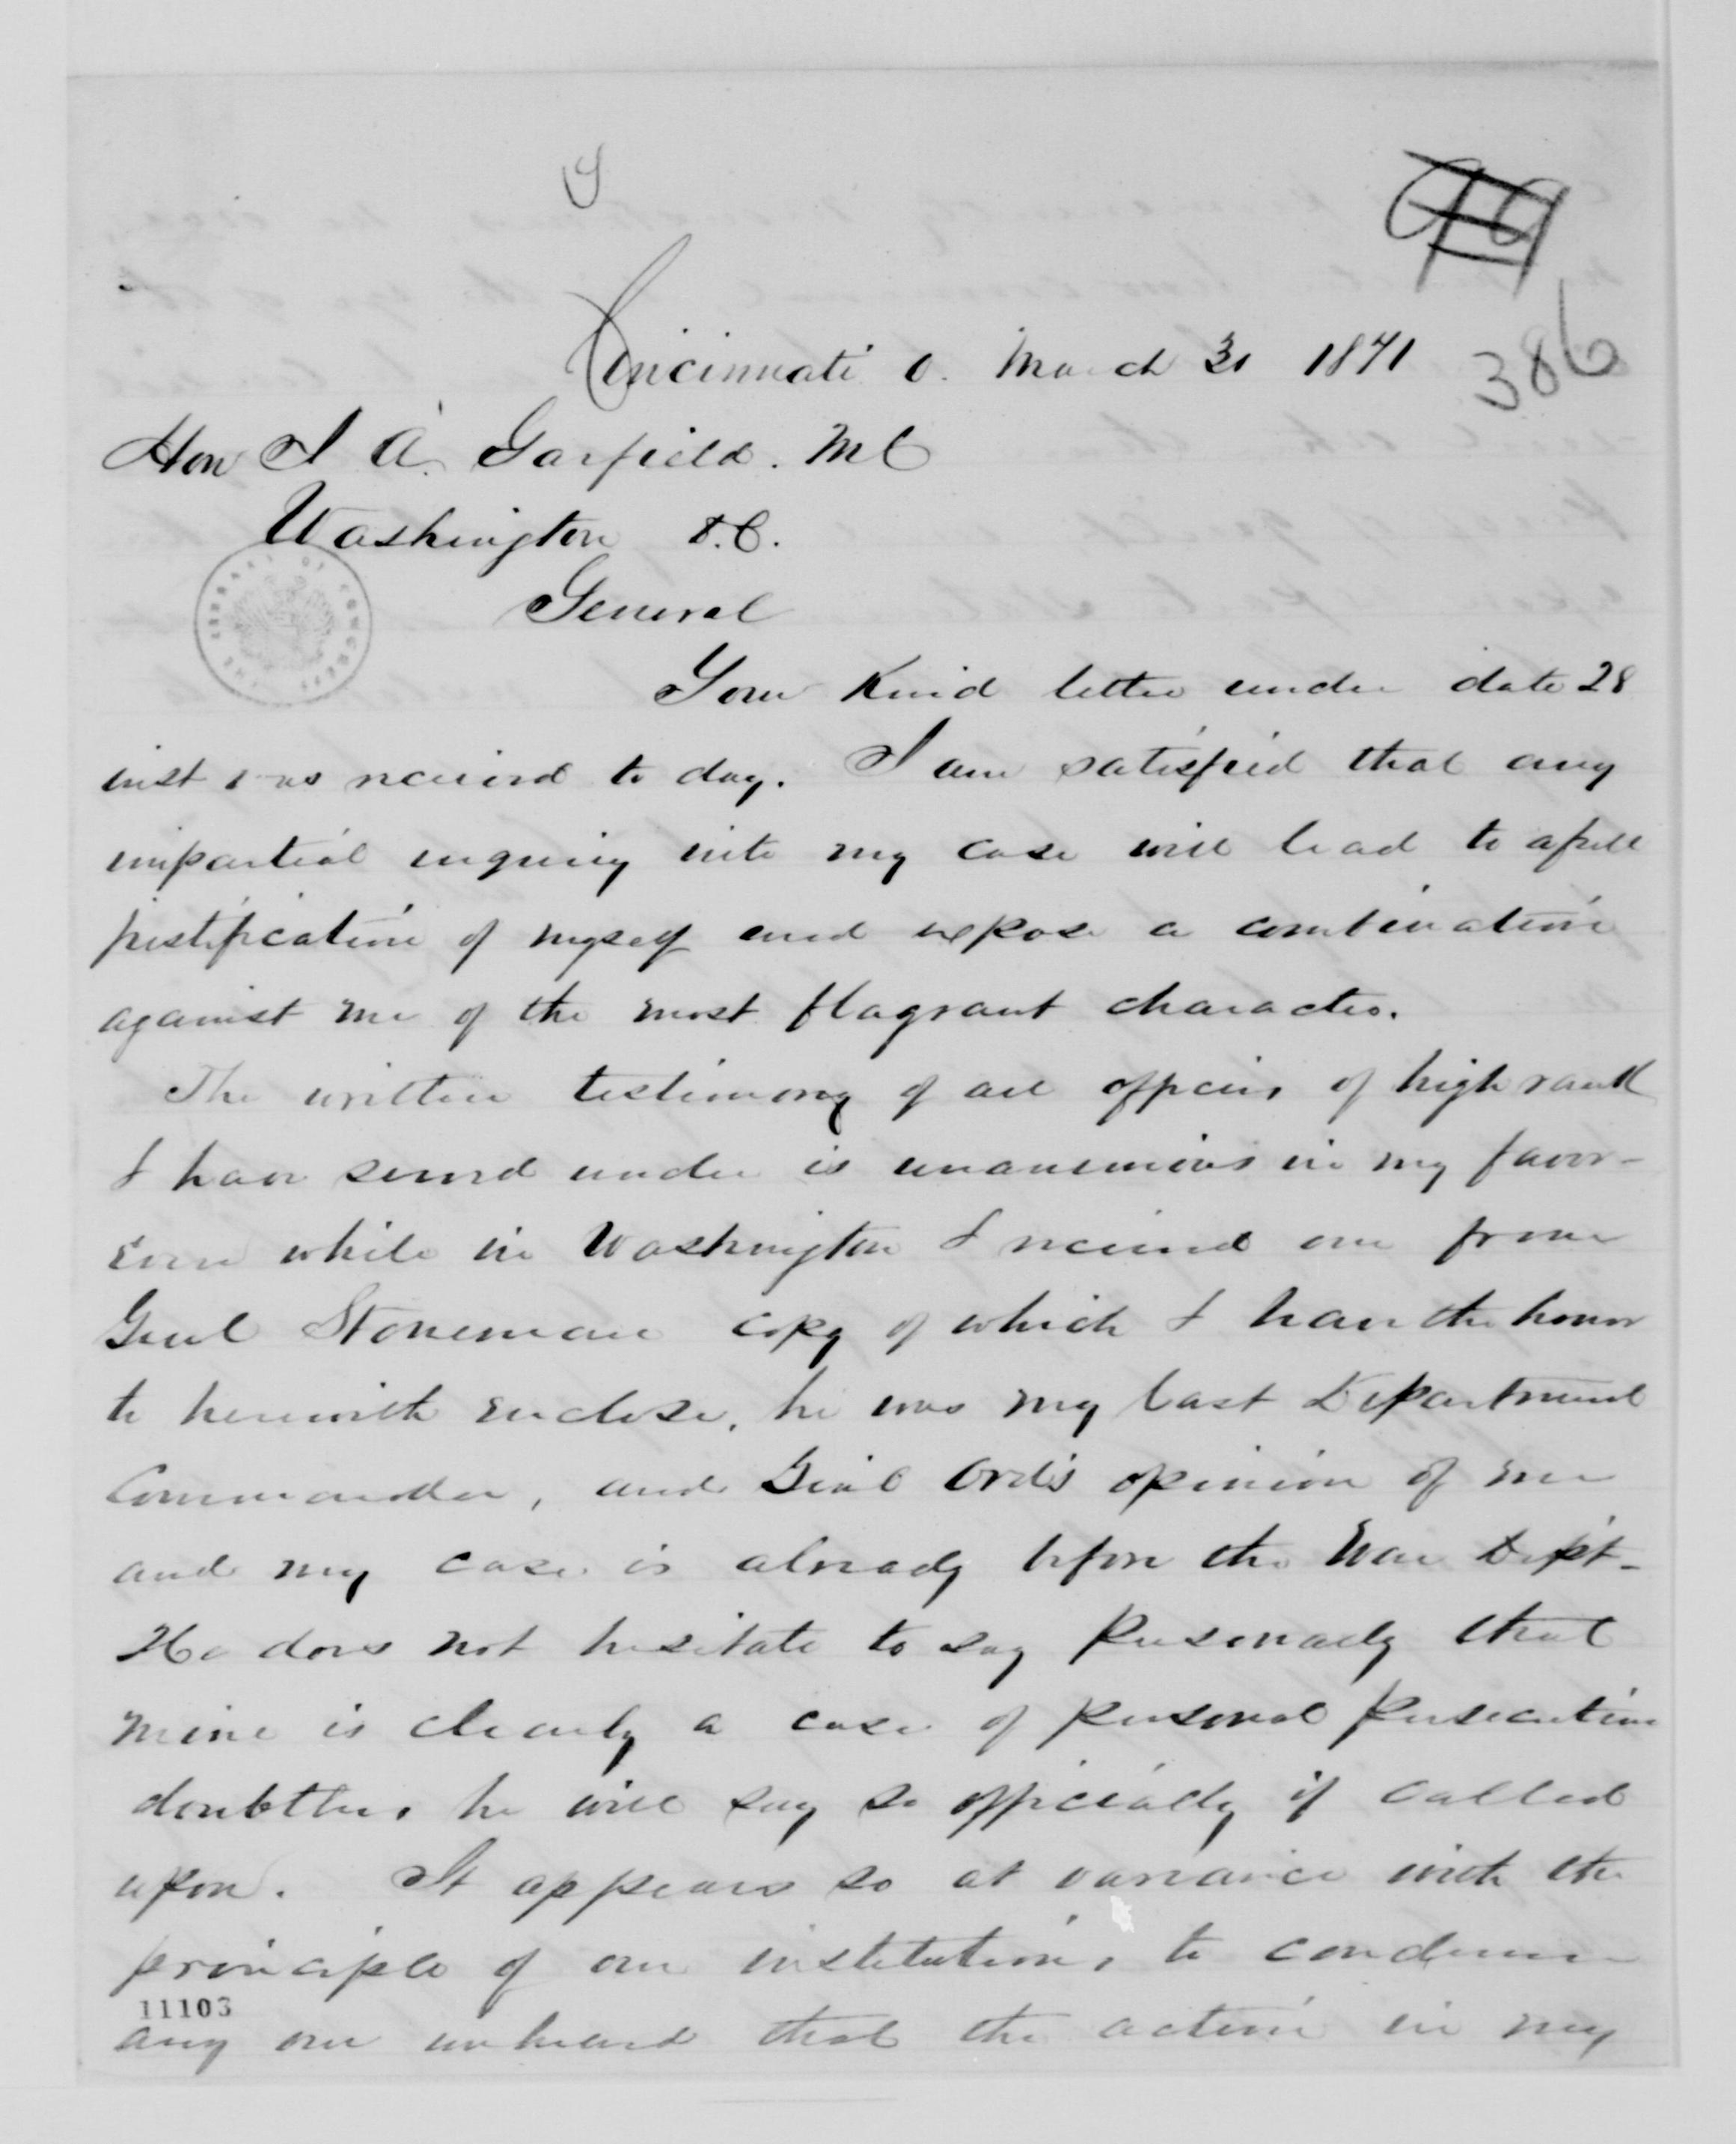 99
386
Cincinnati O. March 31 1871
Hon J A. Garfield. M C
Washington D.C.
General
Your Kind letter under date 28
inst was received to day. I am satisfied that any
impartial inquiry into my case will lead to a full
justification of myself and expose a combination
against me of the most flagrant character.
The written testimony of all officers of high rank
I have served under is unanimous in my favor-
Even while in Washington I received one from
Genl Stoneman copy of which I have the honor
to herewith enclose, he was my last Department
Commander, and Genl Ord's opinion of me
and my case is already before the War Dept-
He does not hesitate to say personally that
mine is clearly a case of personal persecution
doubtless he will say so officially if called
upon. It appears so at variance with the
principle of our institutions to condemn
11103
any one unheard that the action in my
THE LIBRARY OF CONGRESS